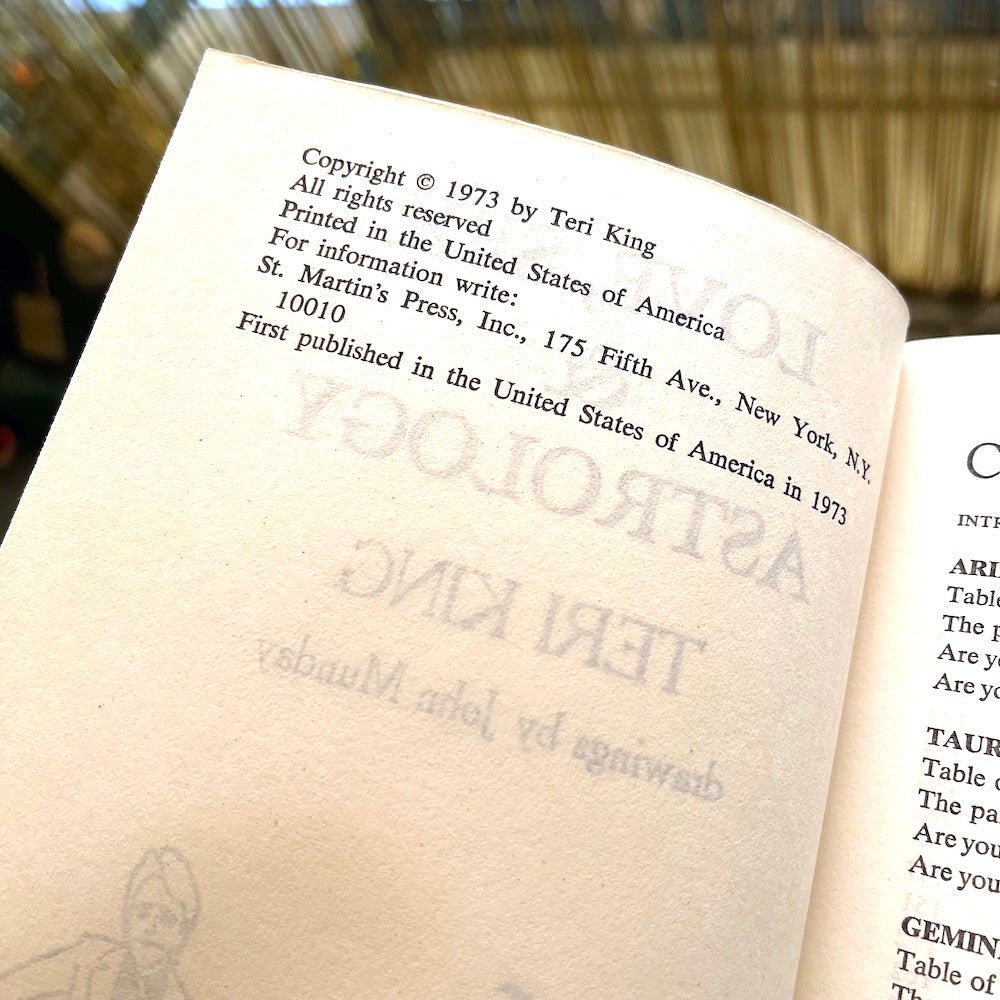 Copyright © 1973 by Teri King
All rights reserved
Printed in the United States of America
For information write:
St. Martin's Press, Inc., 175 Fifth Ave., New York, N.Y.
10010
First published in the United States of America in 1973
LOVE
&
ASTROLOGY
TERI KING
drawings by John Munday
Table
The
Are
Are
Table
The
Are you
Are you
Table of